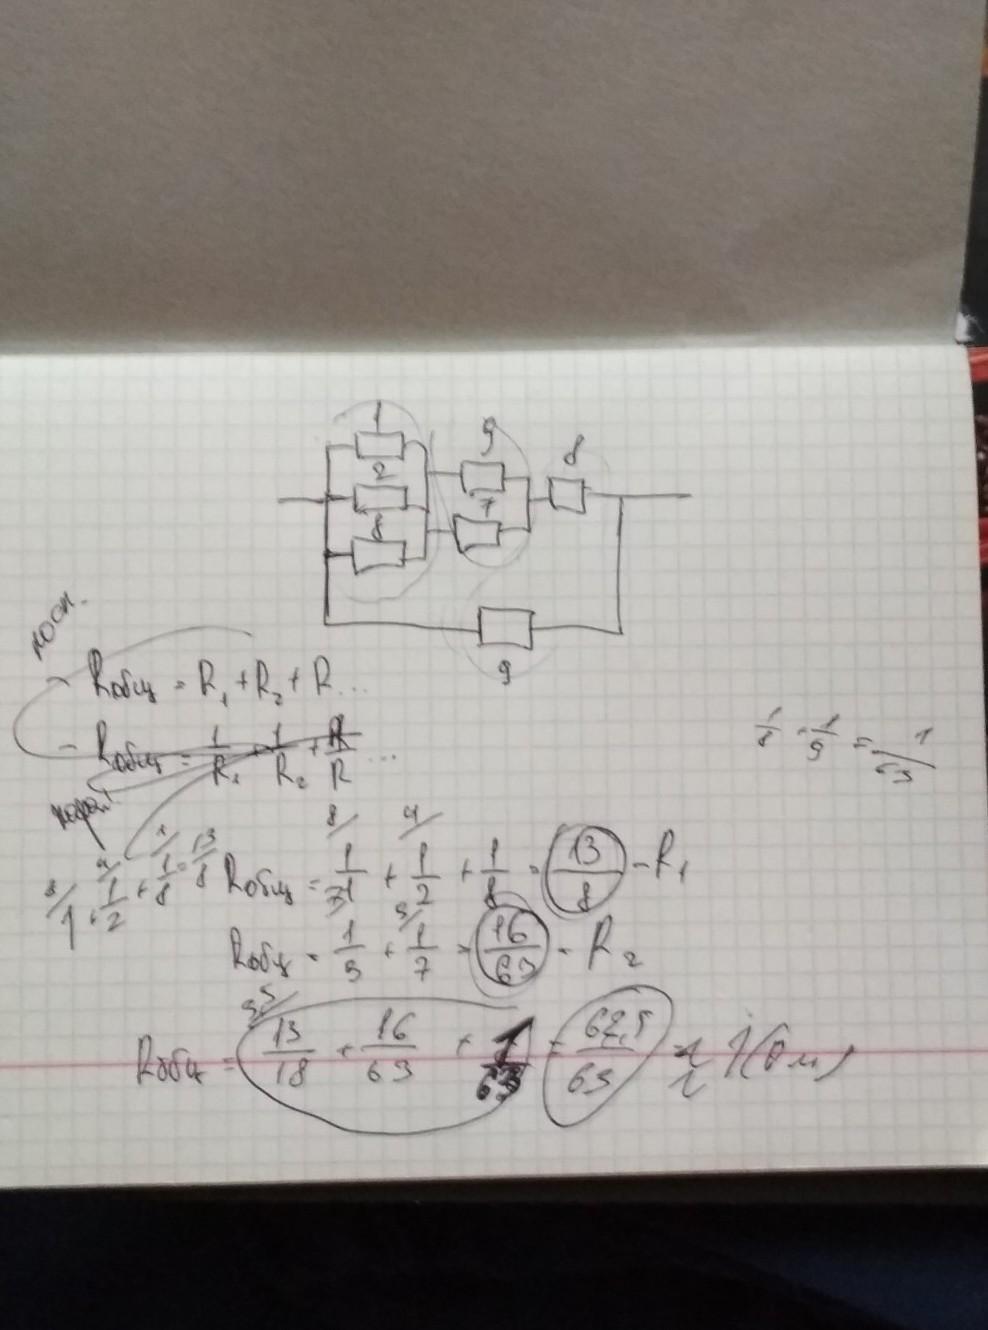 1
2
9
8
8
7
9
посл.
- Rобщ = R₁ + R₂ + R...
- Rобщ = 1/R₁ + 1/R₂ + /R ...
1/8 - 1/9 = 1/63
1/1 + 1/2 + 1/8 = 13/8
Rобщ = 1/1 + 1/2 + 1/8 = 13/8 - R₁
Rобщ = 1/9 + 1/7 = 16/63 - R₂
Rобщ = 13/18 + 16/63 + 1/63 = 62,5/63 1 (Ом)